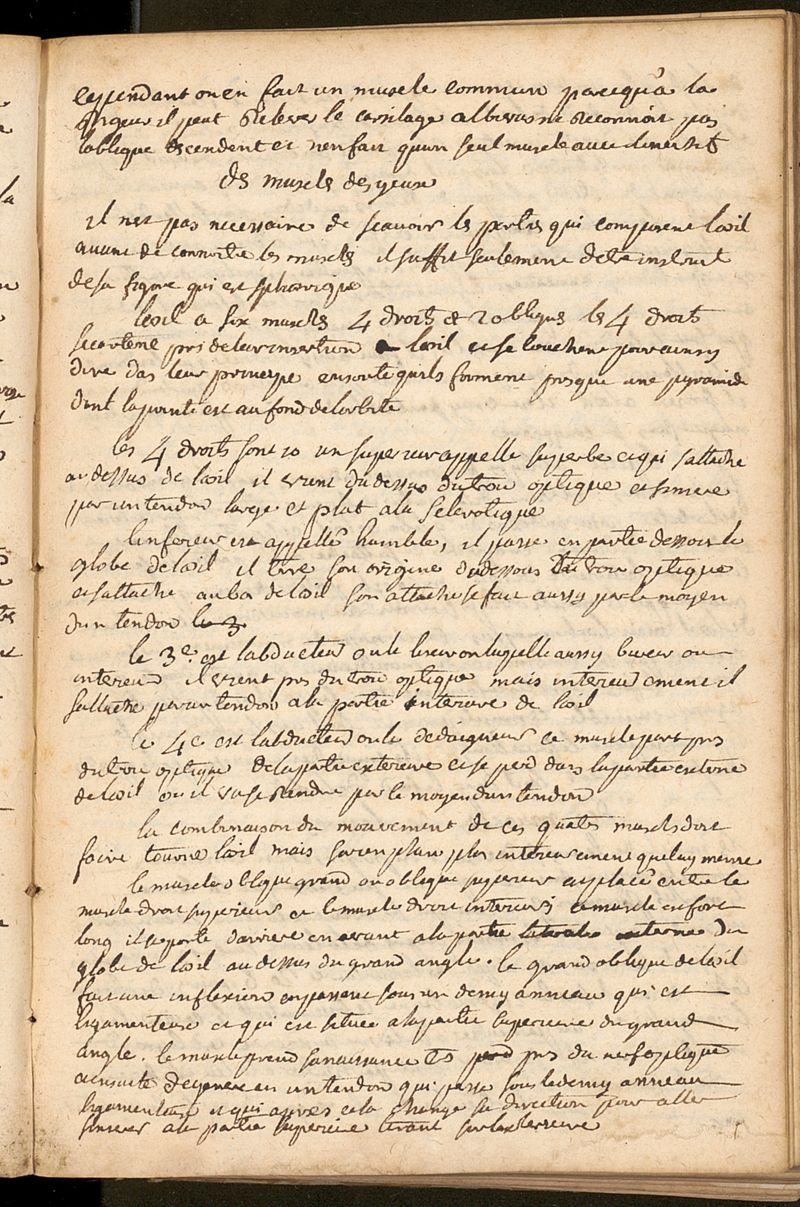 cependant on en fait un muscle commun parcequ'a la
rigueur il peut relever le cartilage albinus ne reconnoit pas
loblique descendent et nen fait quun seul muscle avec
des muscles des yeux
il nest pas necessaire de scavoir les parties qui composent loeil
avant de connoitre les muscles il suffit seulement detre instruit
de sa figure qui est spherique
loeil a six muscles 4 droits et 2 obliques les 4 droits
secartent pres de leur insertion a loeil et se touchent pour ainsy
dire das leur principe ensorte quils forment presque une pyramide
dont la pointe est au fond de lorbite
les 4 droits sont 10 un superieur appellé superbe et qui sattache
au dessus de loeil il vient du dessus du trou optique et sinsere
par un tendon large et plat a la sclerotique
linferieur est appellé humble, il passe en partie dessous le
globe de loeil il tire son origine du dessous du trou optique
et sattache au bas de loeil son attache se fait aussy par le moyen
dun tendon le 3
le 3e. est labducteur ou le liseur on lapelle aussy buveur ou
interieur il vient pres du trou optique mais interieurement il
sattache par un tendon a la partie interieure de loeil
le 4e est labducteur ou le dedaigneur ce muscle part pres
du trou optique de la partie exterieure et se perd dans la partie externe
de loeil ou il va se rendre par le moyen dun tendon
la combinaison du mouvement de ces quatre muscles doit
faire tourner loeil mais plus interieurement que luy meme
le muscle oblique grand ou oblique superieur est placé entre le
muscle droit superieur et le muscle droit interieur ce muscle est fort
long il se porte darriere en avant a la partie externe du
globe de loeil au dessus du grand angle. le grand oblique de loeil
fait une inflexion en passant sous un demy anneau qui est
ligamenteux et qui est située a la partie superieure du grand
angle. le muscle prend sa naissance pres du nerf optique
ensuite degenere en un tendon qui passe sous le demy anneau
ligamenteux et qui apres cela change sa direction pour aller
sinserer a la partie superieure tirant sur